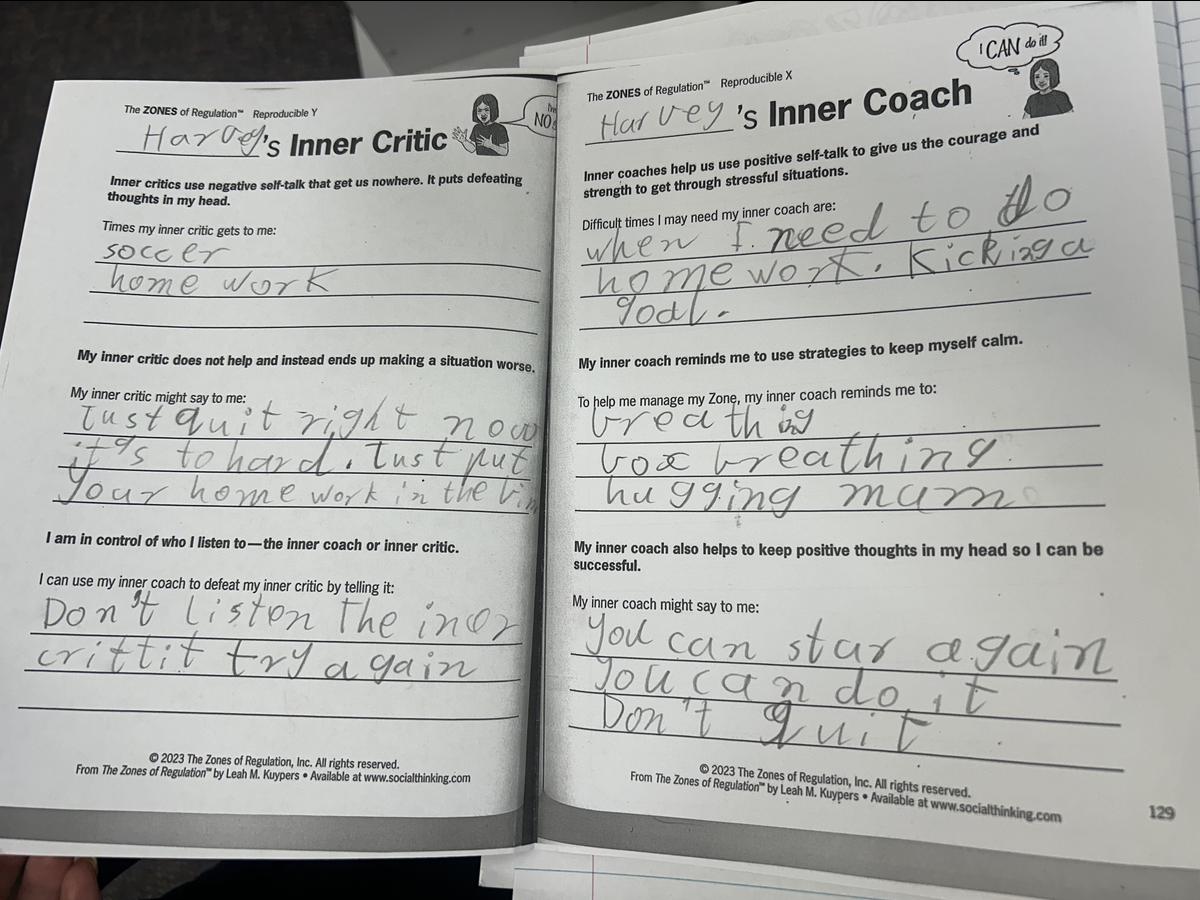 The ZONES of Regulation™ Reproducible Y
Harvey's Inner Critic
NO
Inner critics use negative self-talk that get us nowhere. It puts defeating
thoughts in my head.
Times my inner critic gets to me:
soccer
home work
My inner critic does not help and instead ends up making a situation worse.
My inner critic might say to me:
Just quit right now
it's to hard. Just put
your home work in the bin
I am in control of who I listen to—the inner coach or inner critic.
I can use my inner coach to defeat my inner critic by telling it:
Don't listen the iner
crittit try again
© 2023 The Zones of Regulation, Inc. All rights reserved.
From The Zones of Regulation™ by Leah M. Kuypers • Available at www.socialthinking.com
I CAN do it!
The ZONES of Regulation™ Reproducible X
Harvey's Inner Coach
Inner coaches help us use positive self-talk to give us the courage and
strength to get through stressful situations.
Difficult times I may need my inner coach are:
when I need to do
home work. Kicking a
goal.
My inner coach reminds me to use strategies to keep myself calm.
To help me manage my Zone, my inner coach reminds me to:
breathing
box breathing
hugging mum
My inner coach also helps to keep positive thoughts in my head so I can be
successful.
My inner coach might say to me:
you can star again
you can do it
Don't quit
© 2023 The Zones of Regulation, Inc. All rights reserved.
From The Zones of Regulation™ by Leah M. Kuypers • Available at www.socialthinking.com
129